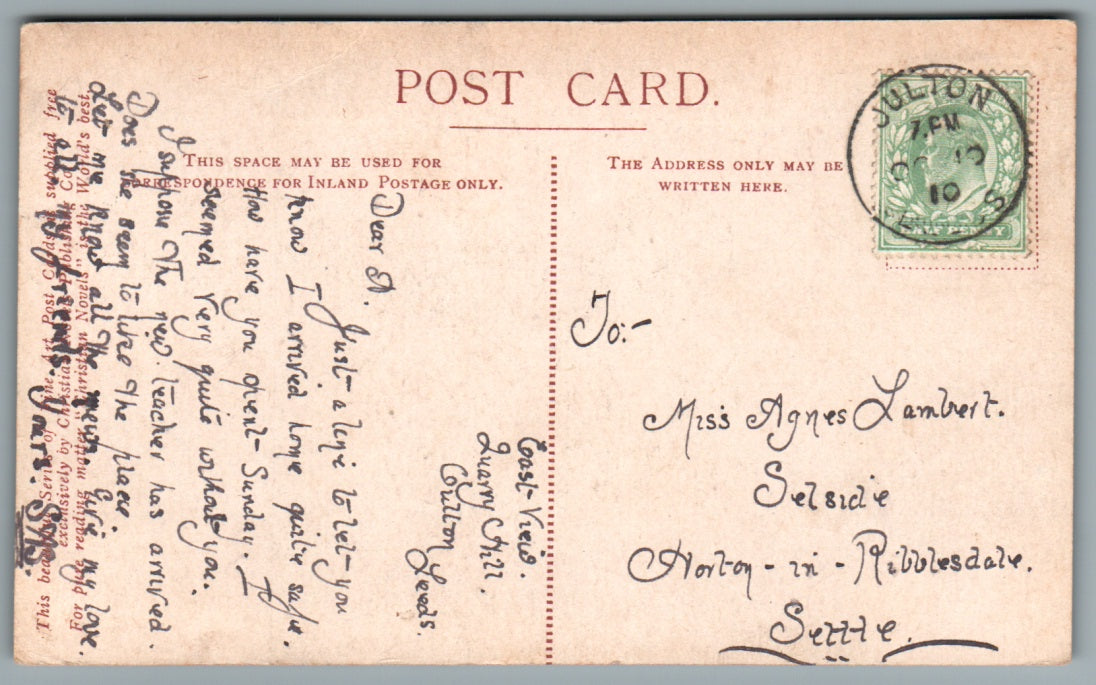 POST CARD.
THIS SPACE MAY BE USED FOR
CORRESPONDENCE FOR INLAND POSTAGE ONLY.
THE ADDRESS ONLY MAY BE
WRITTEN HERE.
7.PM
10
HALF PENNY
To:-
Miss Agnes Lambert.
Selside
Horton-in-Ribblesdale.
Settle.
East View.
Quarry Hill.
Oulton
Leeds.
Dear A.
Just a line to let you
know I arrived home quite safe.
How have you spent Sunday. I
seemed very quite without you.
I suppose The new teacher has arrived.
Does she seem to like the place.
Let me know all The news. Give my love.
to all my friends. Yours.
This beautiful Series of Fine Art Post Cards is supplied free
exclusively by Christian Novels Publishing Co.
For pure reading matter "Christian Novels" is the World's best.